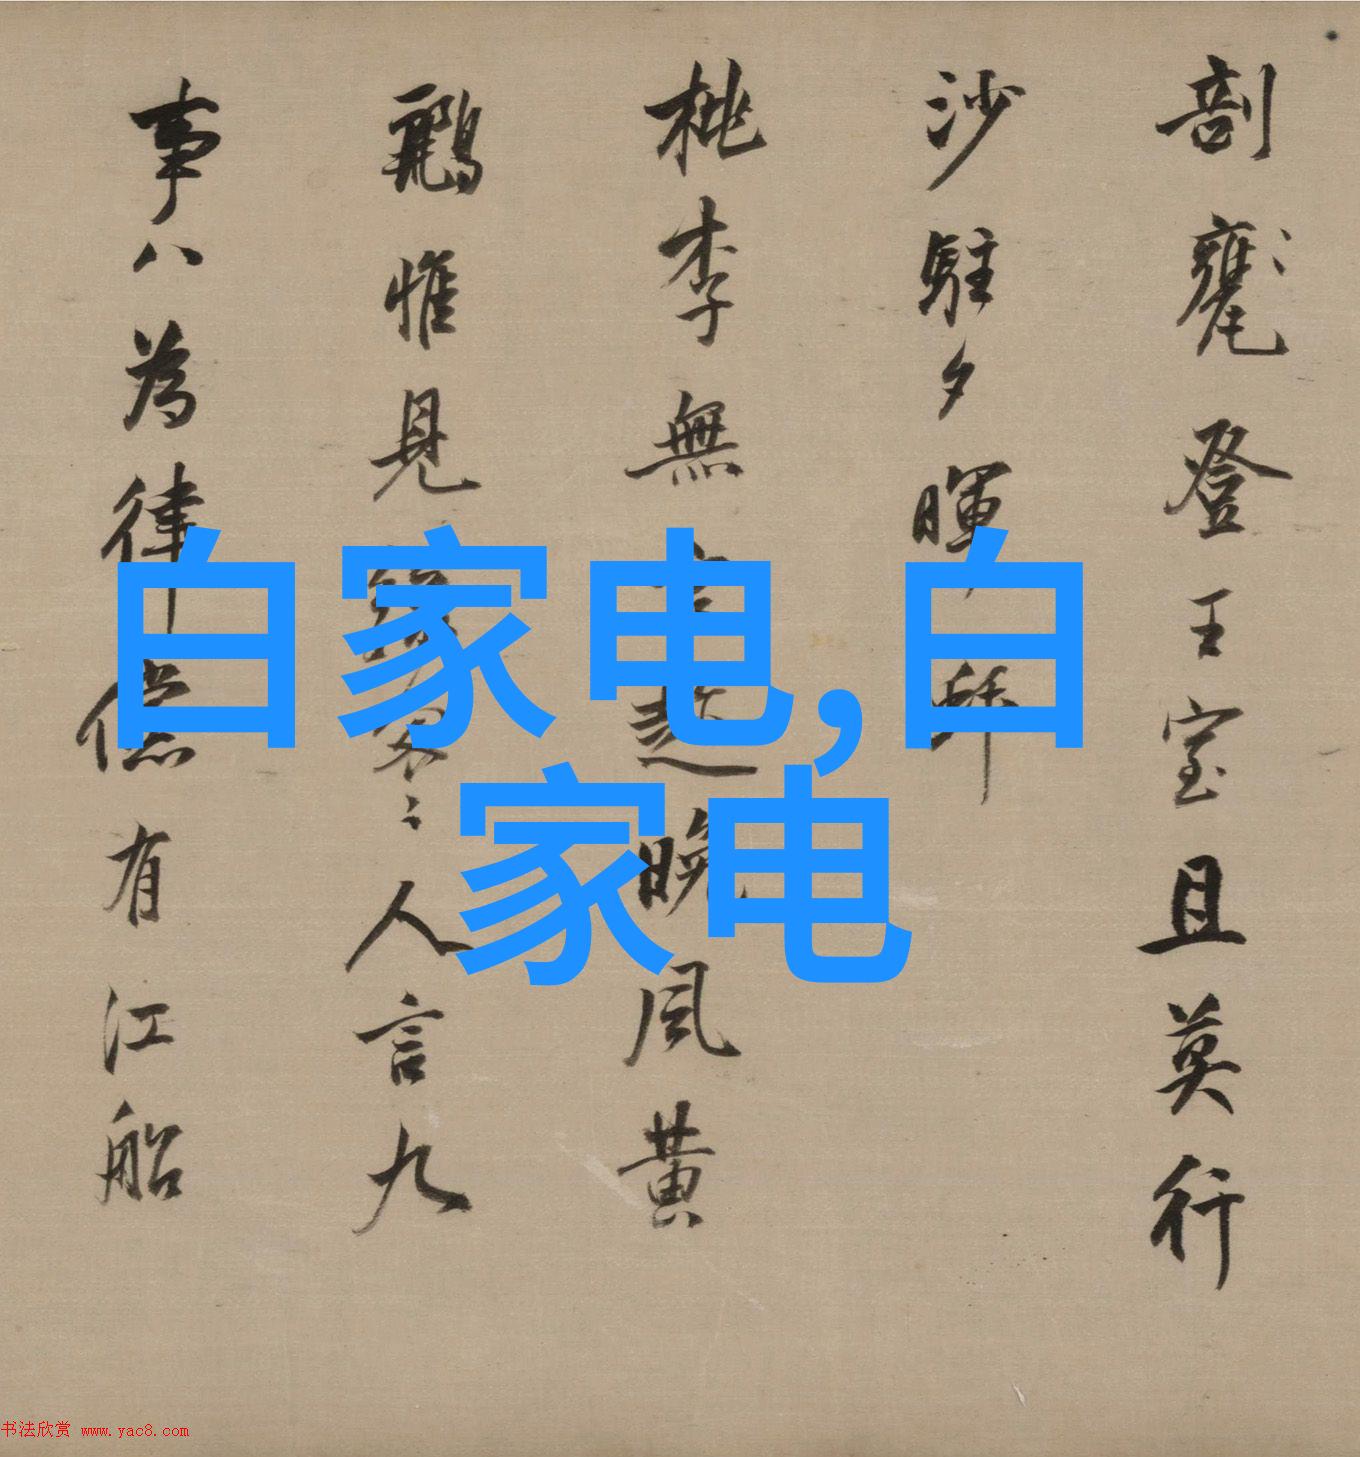 剖甕登王室且莫行
沙駐夕暉
桃李無晚風黃
鸝惟見人言九
事八為律儻有江船
白家电,白
家电
书法欣赏 www.yac8.com